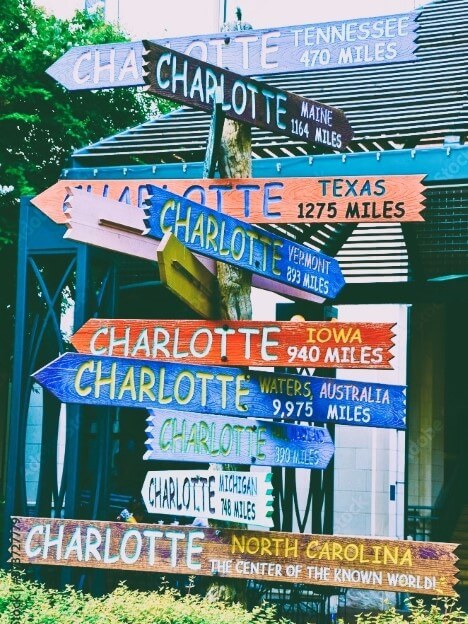 CHARLOTTE TENNESSEE
470 MILES
CHARLOTTE MAINE
1164 MILES
CHARLOTTE TEXAS
1275 MILES
CHARLOTTE VERMONT
893 MILES
CHARLOTTE IOWA
940 MILES
CHARLOTTE WATERS, AUSTRALIA
9,975 MILES
CHARLOTTE
890 MILES
CHARLOTTE MICHIGAN
748 MILES
CHARLOTTE NORTH CAROLINA
THE CENTER OF THE KNOWN WORLD!